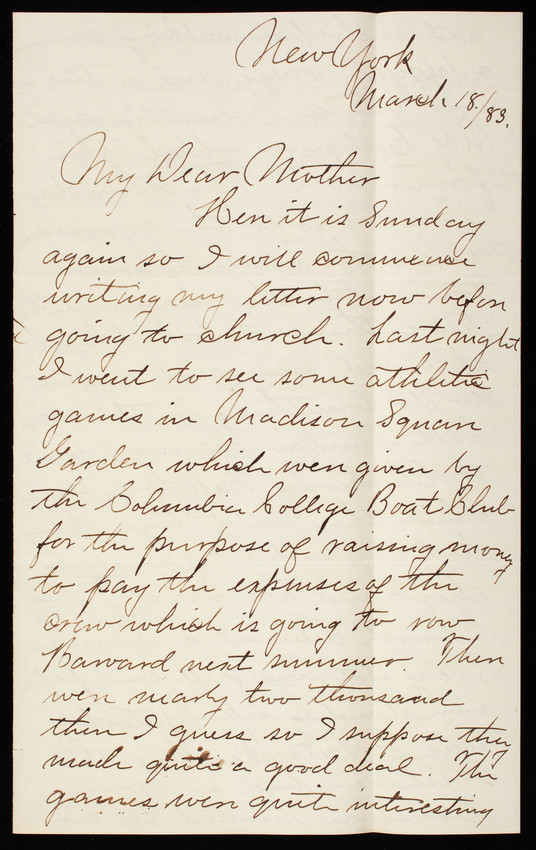 New York
March 18./83.
My Dear Mother
Here it is Sunday
again so I will commence
writing my letter now before
going to church. Last night
I went to see some athletic
games in Madison Square
Garden which were given by
the Columbia College Boat Club
for the purpose of raising money
to pay the expenses of the
crew which is going to row
Harvard next summer. There
were nearly two thousand
there I guess so I suppose they
made quite a good deal. The
games were quite interesting